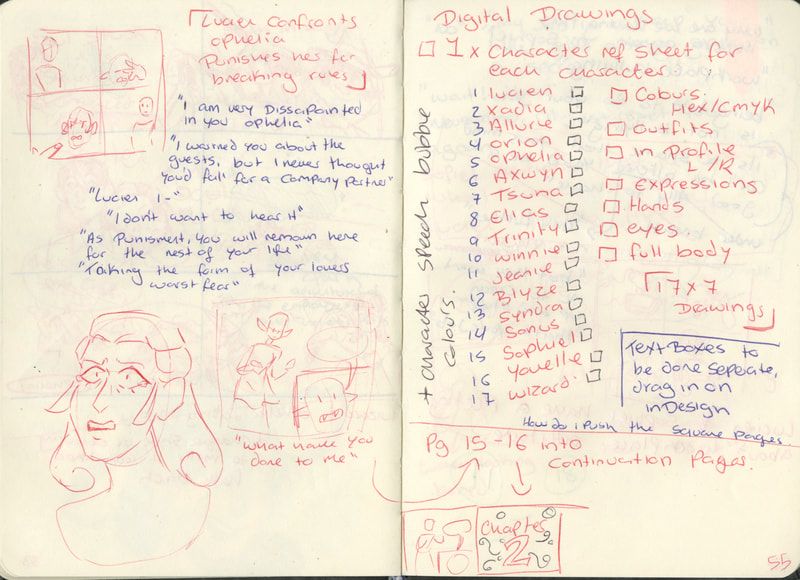 Lucien confronts
ophelia
Punishes her for
breaking rules
"I am very Dissapointed
in you ophelia"
"I warned you about the
guests, but I never thought
you'd fall for a Company Partner"
"Lucien I-"
"I don't want to hear it"
"As Punisment, You will remain here
for the rest of your life"
"Taking the form of your lovers
worst fear"
"What have you
done to me"
Digital Drawings
1 x Character ref sheet for
each character
1 lucien
2 Xadia
3 Allurie
4 orion
5 ophelia
6 Axwyn
7 Tsuna
8 Elias
9 Trinity
10 winnie
11 Jeanie
12 Blyze
13 Syndra
14 Sonus
15 Sophiel
16 Yovelle
17 wizard
Colours
Hex/Cmyk
Outfits
in Profile
L/R
Expressions
Hands
eyes
full body
17 x 7
Drawings
+ Character Speech bubble
Colours.
Text Boxes to
be done seperate,
drag in on
inDesign
How do i push the square pages.
Pg 15-16 into
Continuation Pages.
Chapter
2
55